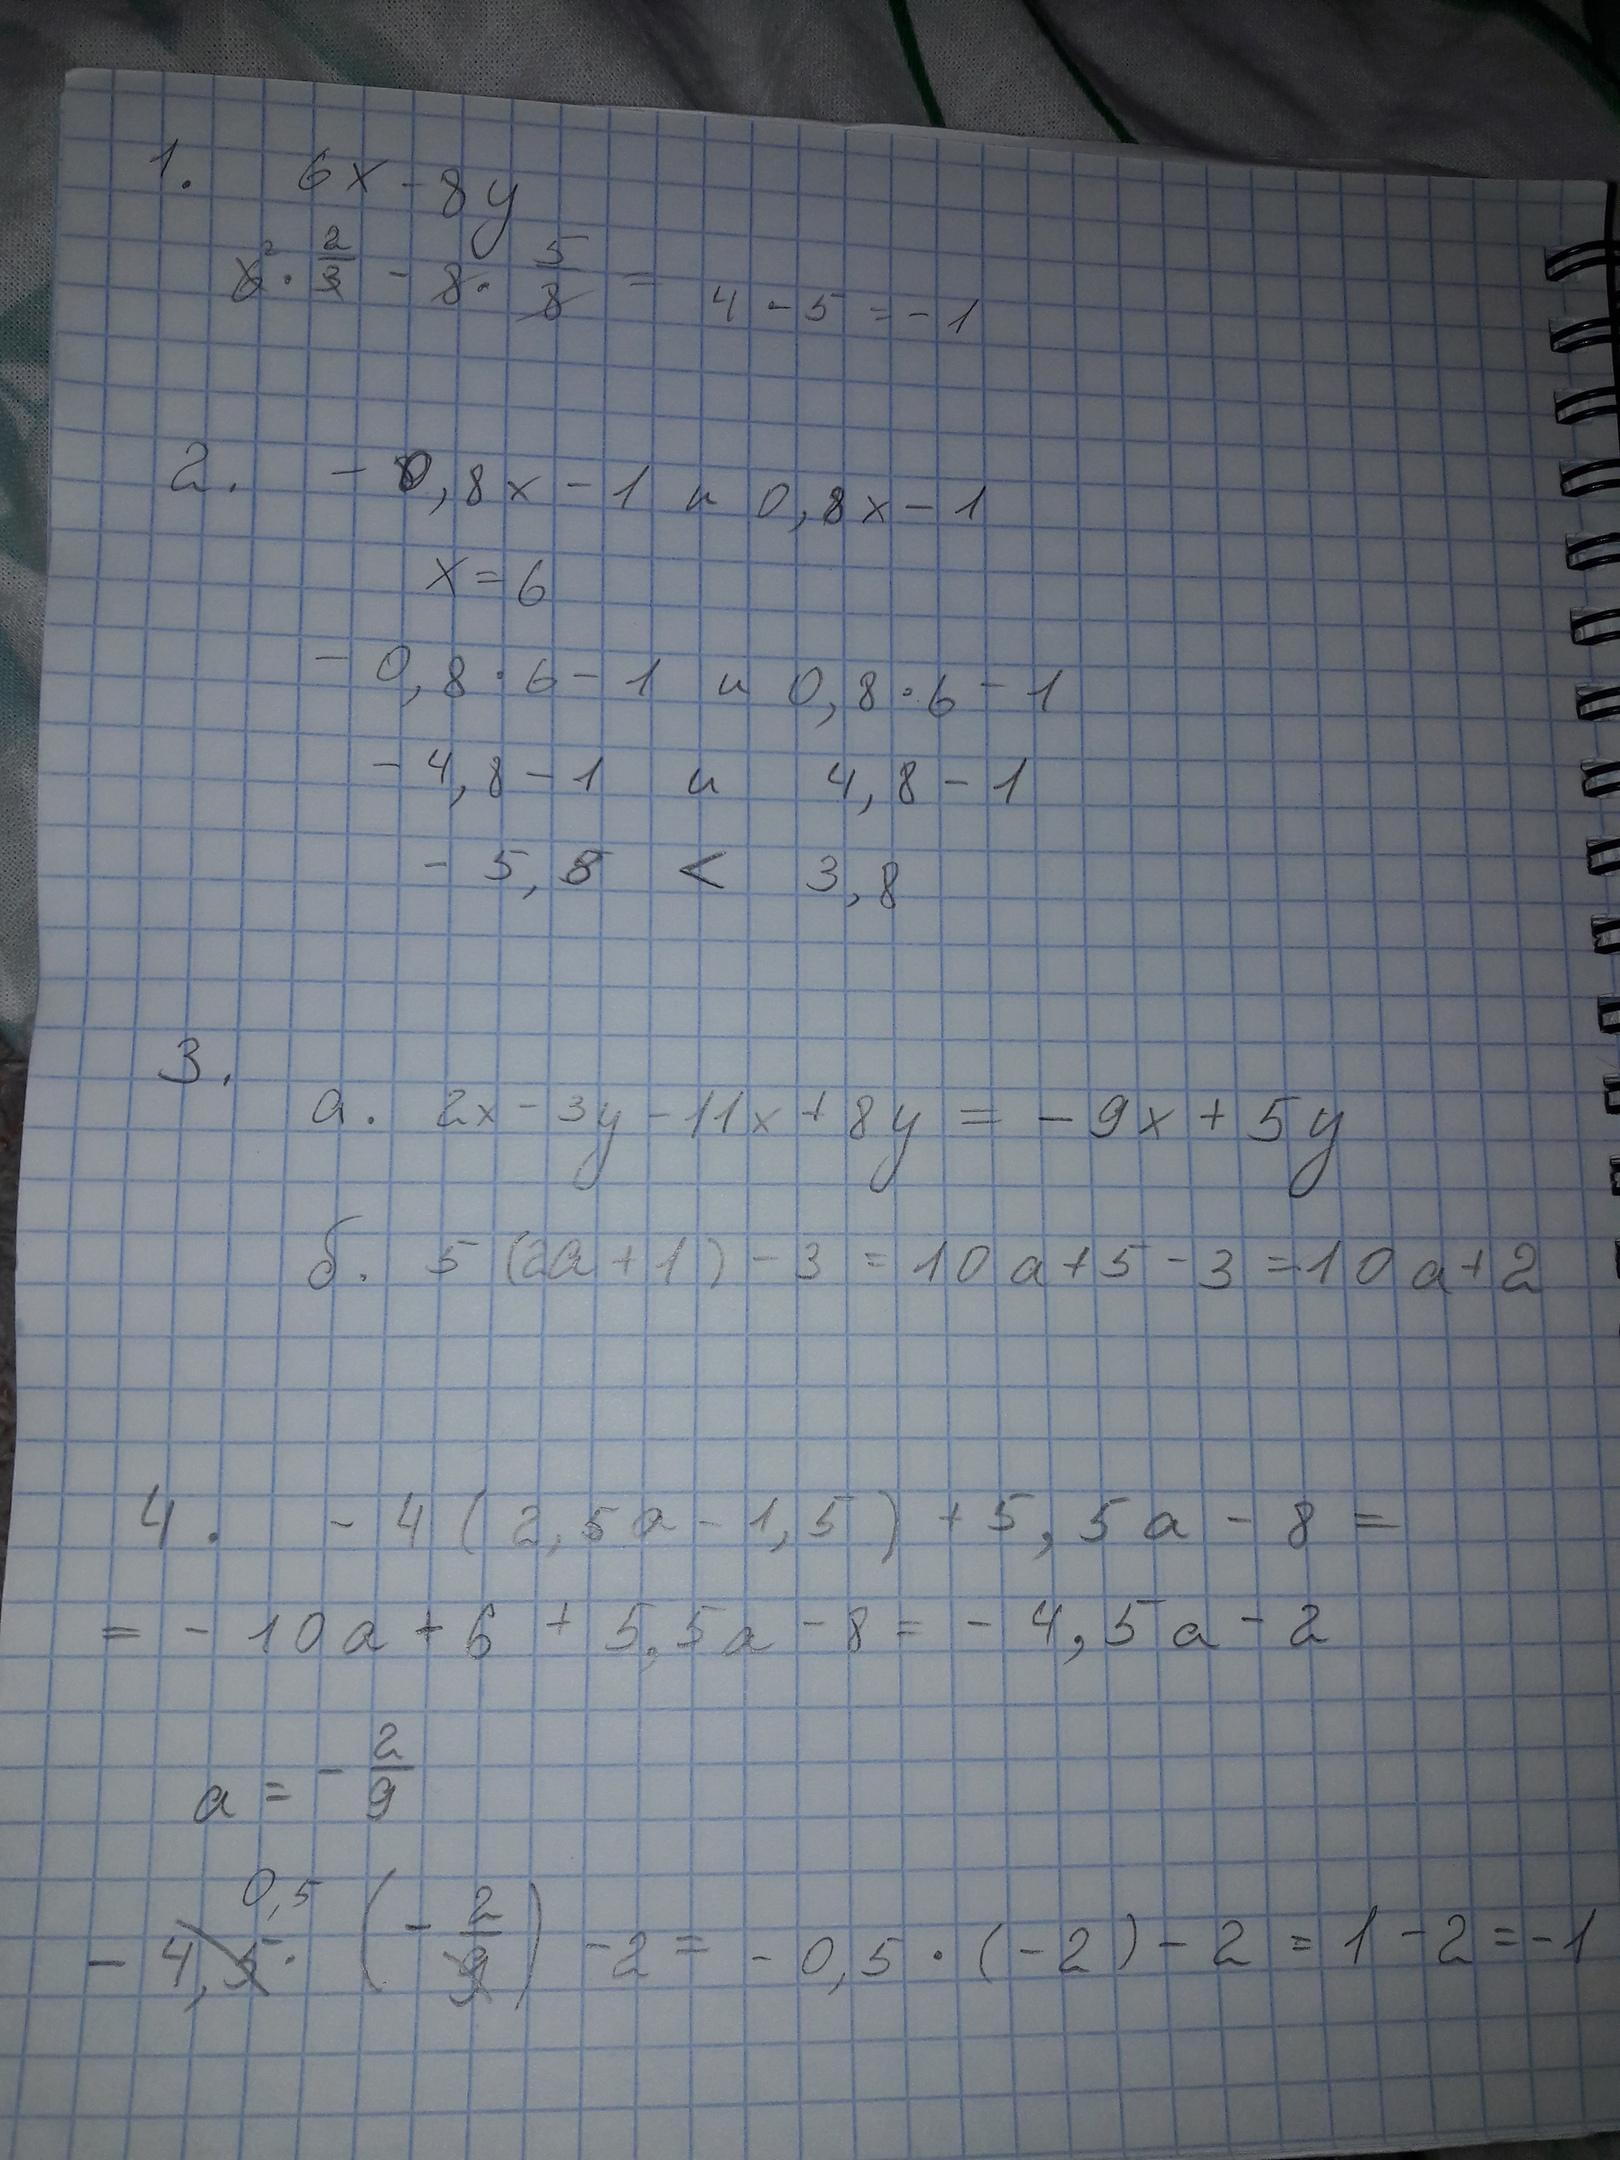 1. 6x - 8y
6² · 2/3 - 8 · 5/8 = 4 - 5 = -1
2. - 0,8x - 1 и 0,8x - 1
x = 6
- 0,8 · 6 - 1 и 0,8 · 6 - 1
- 4,8 - 1 и 4,8 - 1
- 5,8 < 3,8
3.
а. 2x - 3y - 11x + 8y = - 9x + 5y
б. 5 (2a + 1) - 3 = 10a + 5 - 3 = 10a + 2
4. - 4 (2,5a - 1,5) + 5,5a - 8 =
= - 10a + 6 + 5,5a - 8 = - 4,5a - 2
a = - 2/9
0,5
- 4,5 · (- 2/9) - 2 = - 0,5 · (-2) - 2 = 1 - 2 = -1